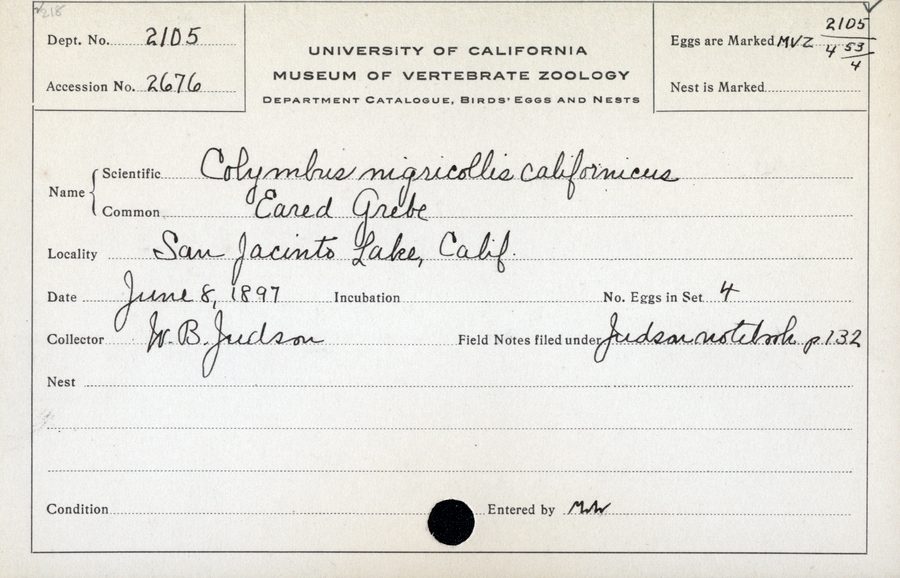 Dept. No. 2105
Accession No. 2676
UNIVERSITY OF CALIFORNIA
MUSEUM OF VERTEBRATE ZOOLOGY
DEPARTMENT CATALOGUE, BIRDS' EGGS AND NESTS
Eggs are Marked MVZ 2105
4 53/4
Nest is Marked
Name
Scientific Colymbus nigricollis californicus
Common Eared Grebe
Locality San Jacinto Lake, Calif.
Date June 8, 1897 Incubation No. Eggs in Set 4
Collector W. B. Judson Field Notes filed under Judson notebook p. 132
Nest
Condition Entered by